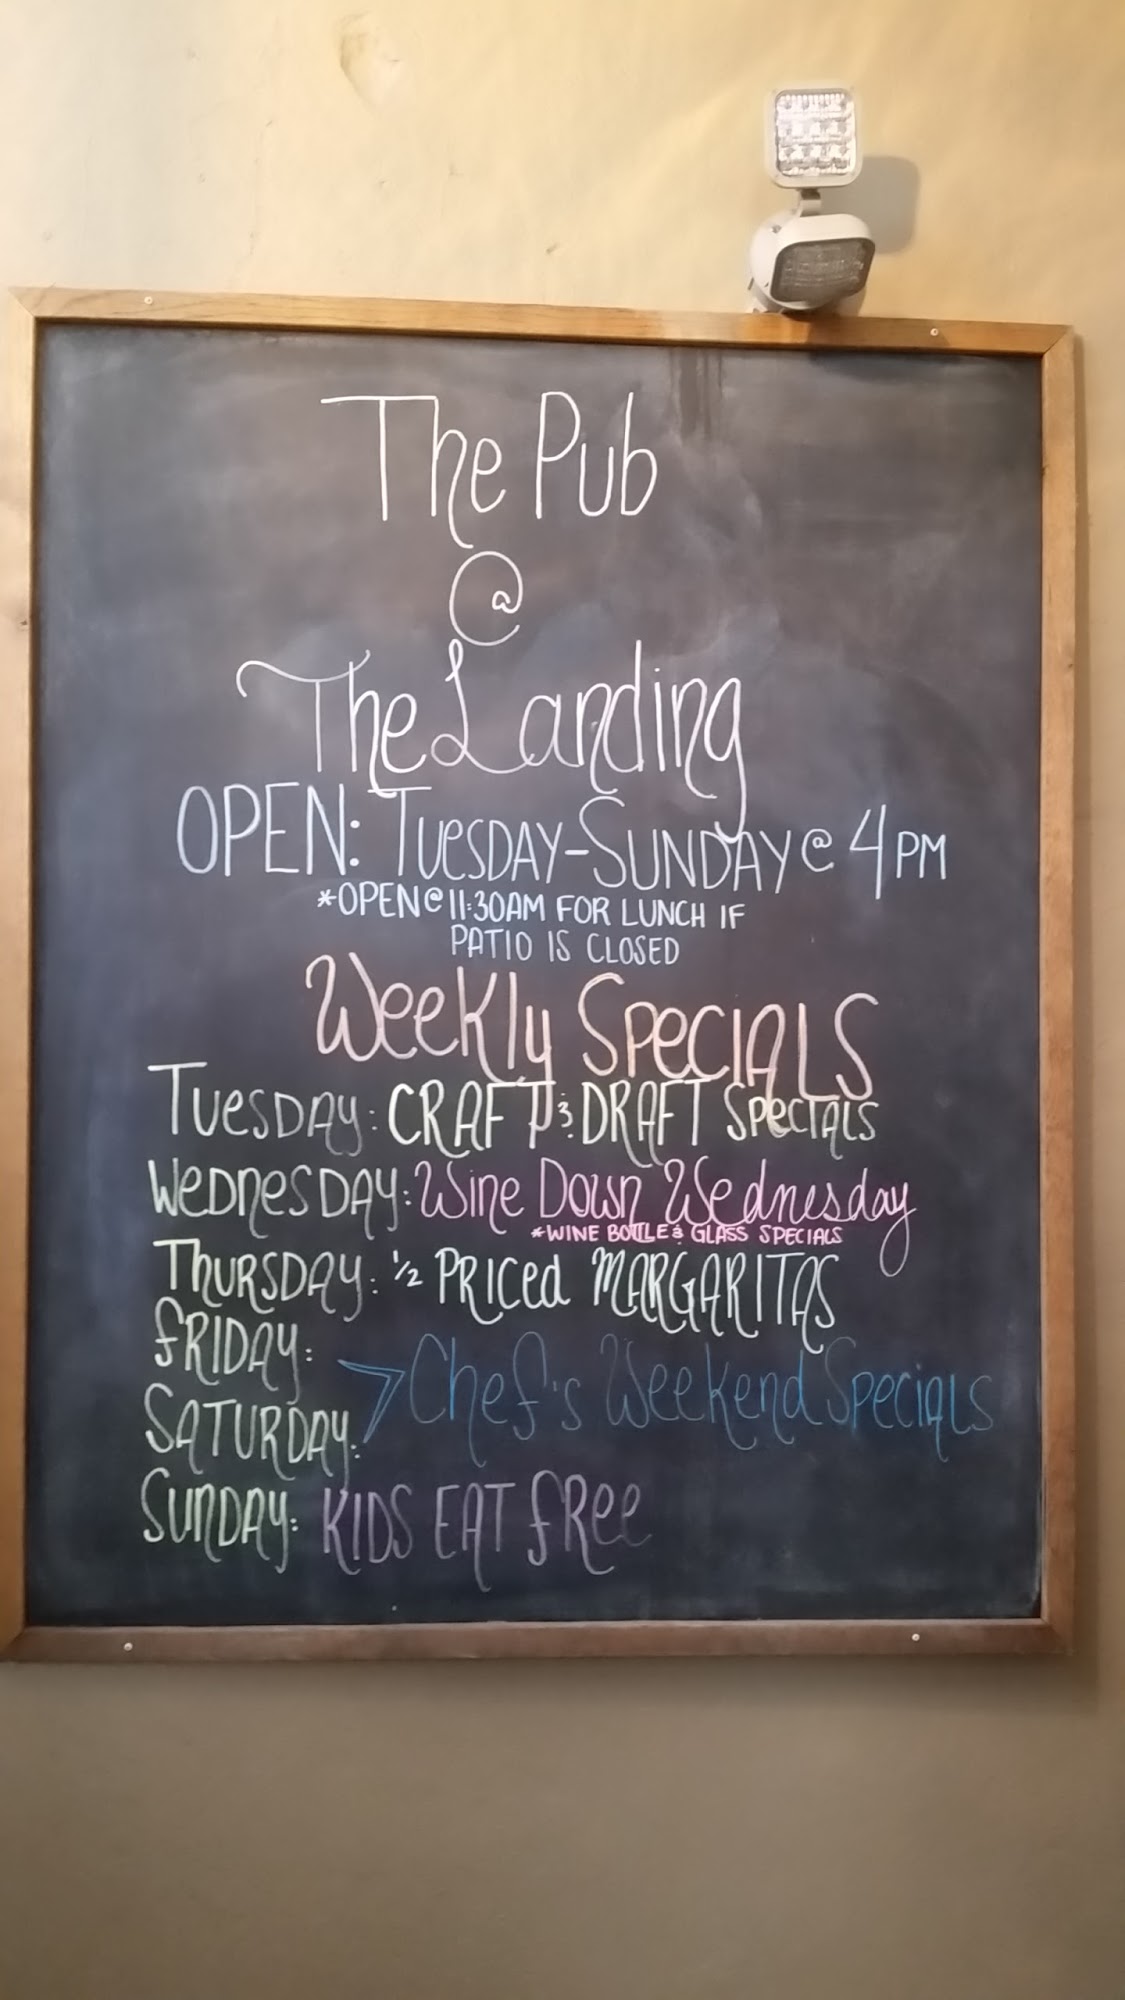 The Pub
@
The Landing
OPEN: TUESDAY-SUNDAY @ 4PM
*OPEN @ 11:30AM FOR LUNCH IF
PATIO IS CLOSED
Weekly Specials
TUESDAY: CRAFT & DRAFT SPECIALS
WEDNESDAY: Wine Down Wednesday
*WINE BOTTLE & GLASS SPECIALS
THURSDAY: ½ PRICED MARGARITAS
FRIDAY:
SATURDAY: > Chef's Weekend Specials
SUNDAY: KIDS EAT FREE